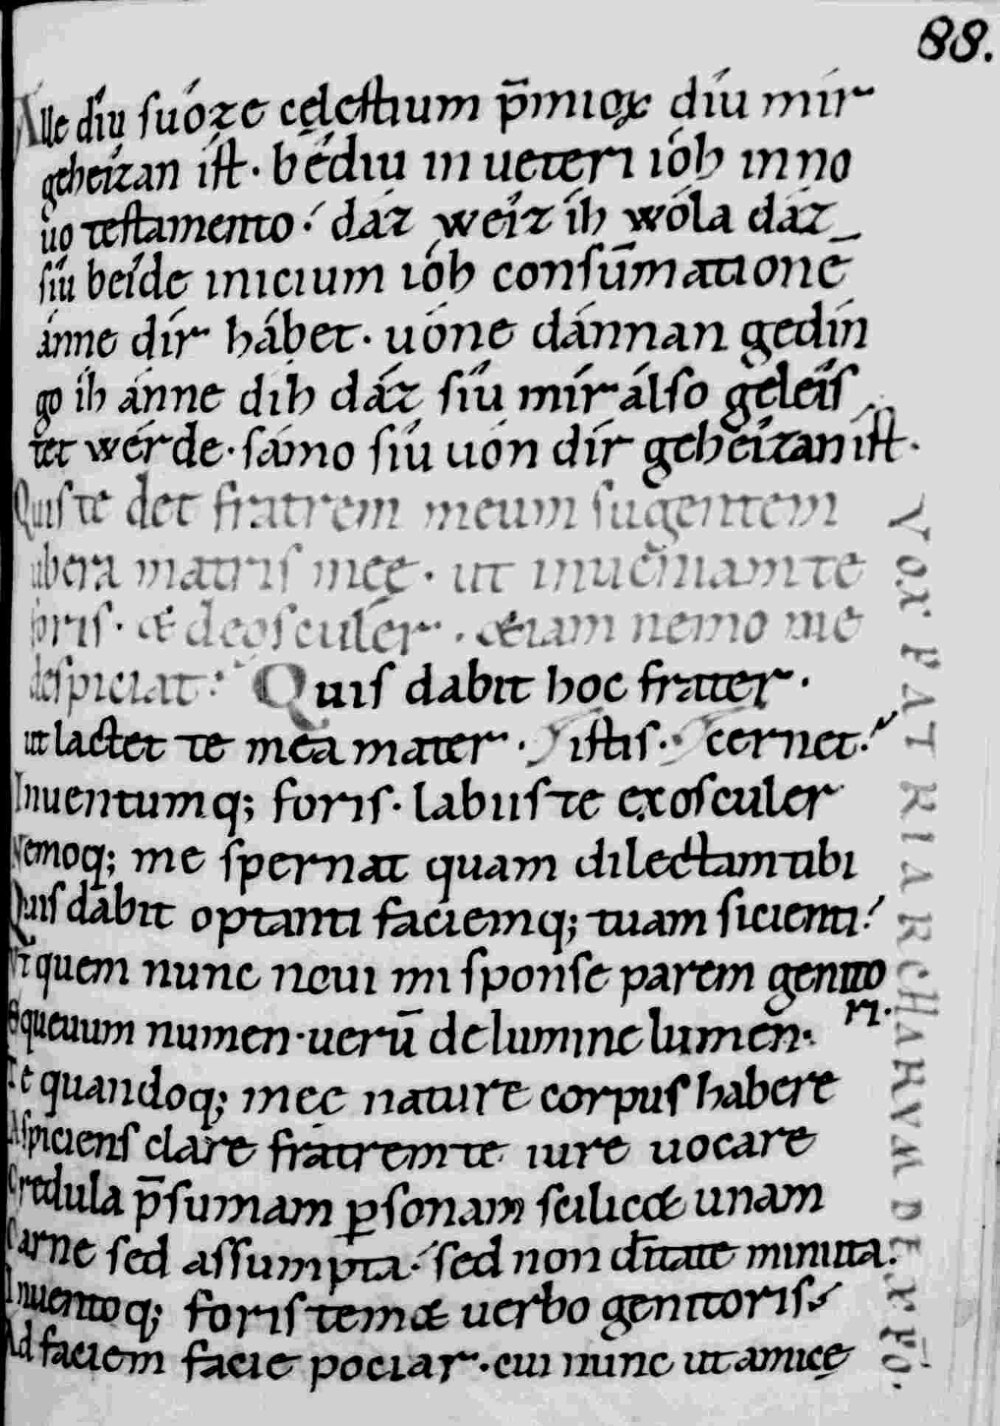 88.
Alle díu suóze cęlestium p̄mioꝝ díu mír
geheízan ist · bédiu in ueteri ióh in no
uo testamento · dáz weíz íh wóla dáz
síu beíde inicium ióh consūmatione
ánne dír hábet · uóne dánnan gedín
go íh ánne díh dáz síu mír álso geleís
tet wérde · sámo síu uón dír geheízan ist ·
Quis te det fratrem meum sugentem
ubera matris meę · ut inueniam te
foris · & deosculer · & iam nemo me
despiciat · Quis dabit hoc frater ·
ut lactet te mea mater · istis · cernet ·
Inuentumq; foris · labiis te exosculer
Nemoq; me spernat quam dilectam tibi
Quis dabit optanti faciemq; tuam sicienti
Vt quem nunc noui mi sponse parem genito
ri ·
Equeuum numen · uerū de lumine lumen ·
Te quandoq; meę naturę corpus habere
Aspiciens clare fratrem te iure uocare
Credula p̄sumam ꝑsonam scilicet unam
Carne sed assumpta · sed non dītate minuta ·
Inuentoq; foris tem& uerbo genitoris
Ad faciem facie pociar · cui nunc ut amicę
VOX PATRIARCHARVM DE XPŌ.